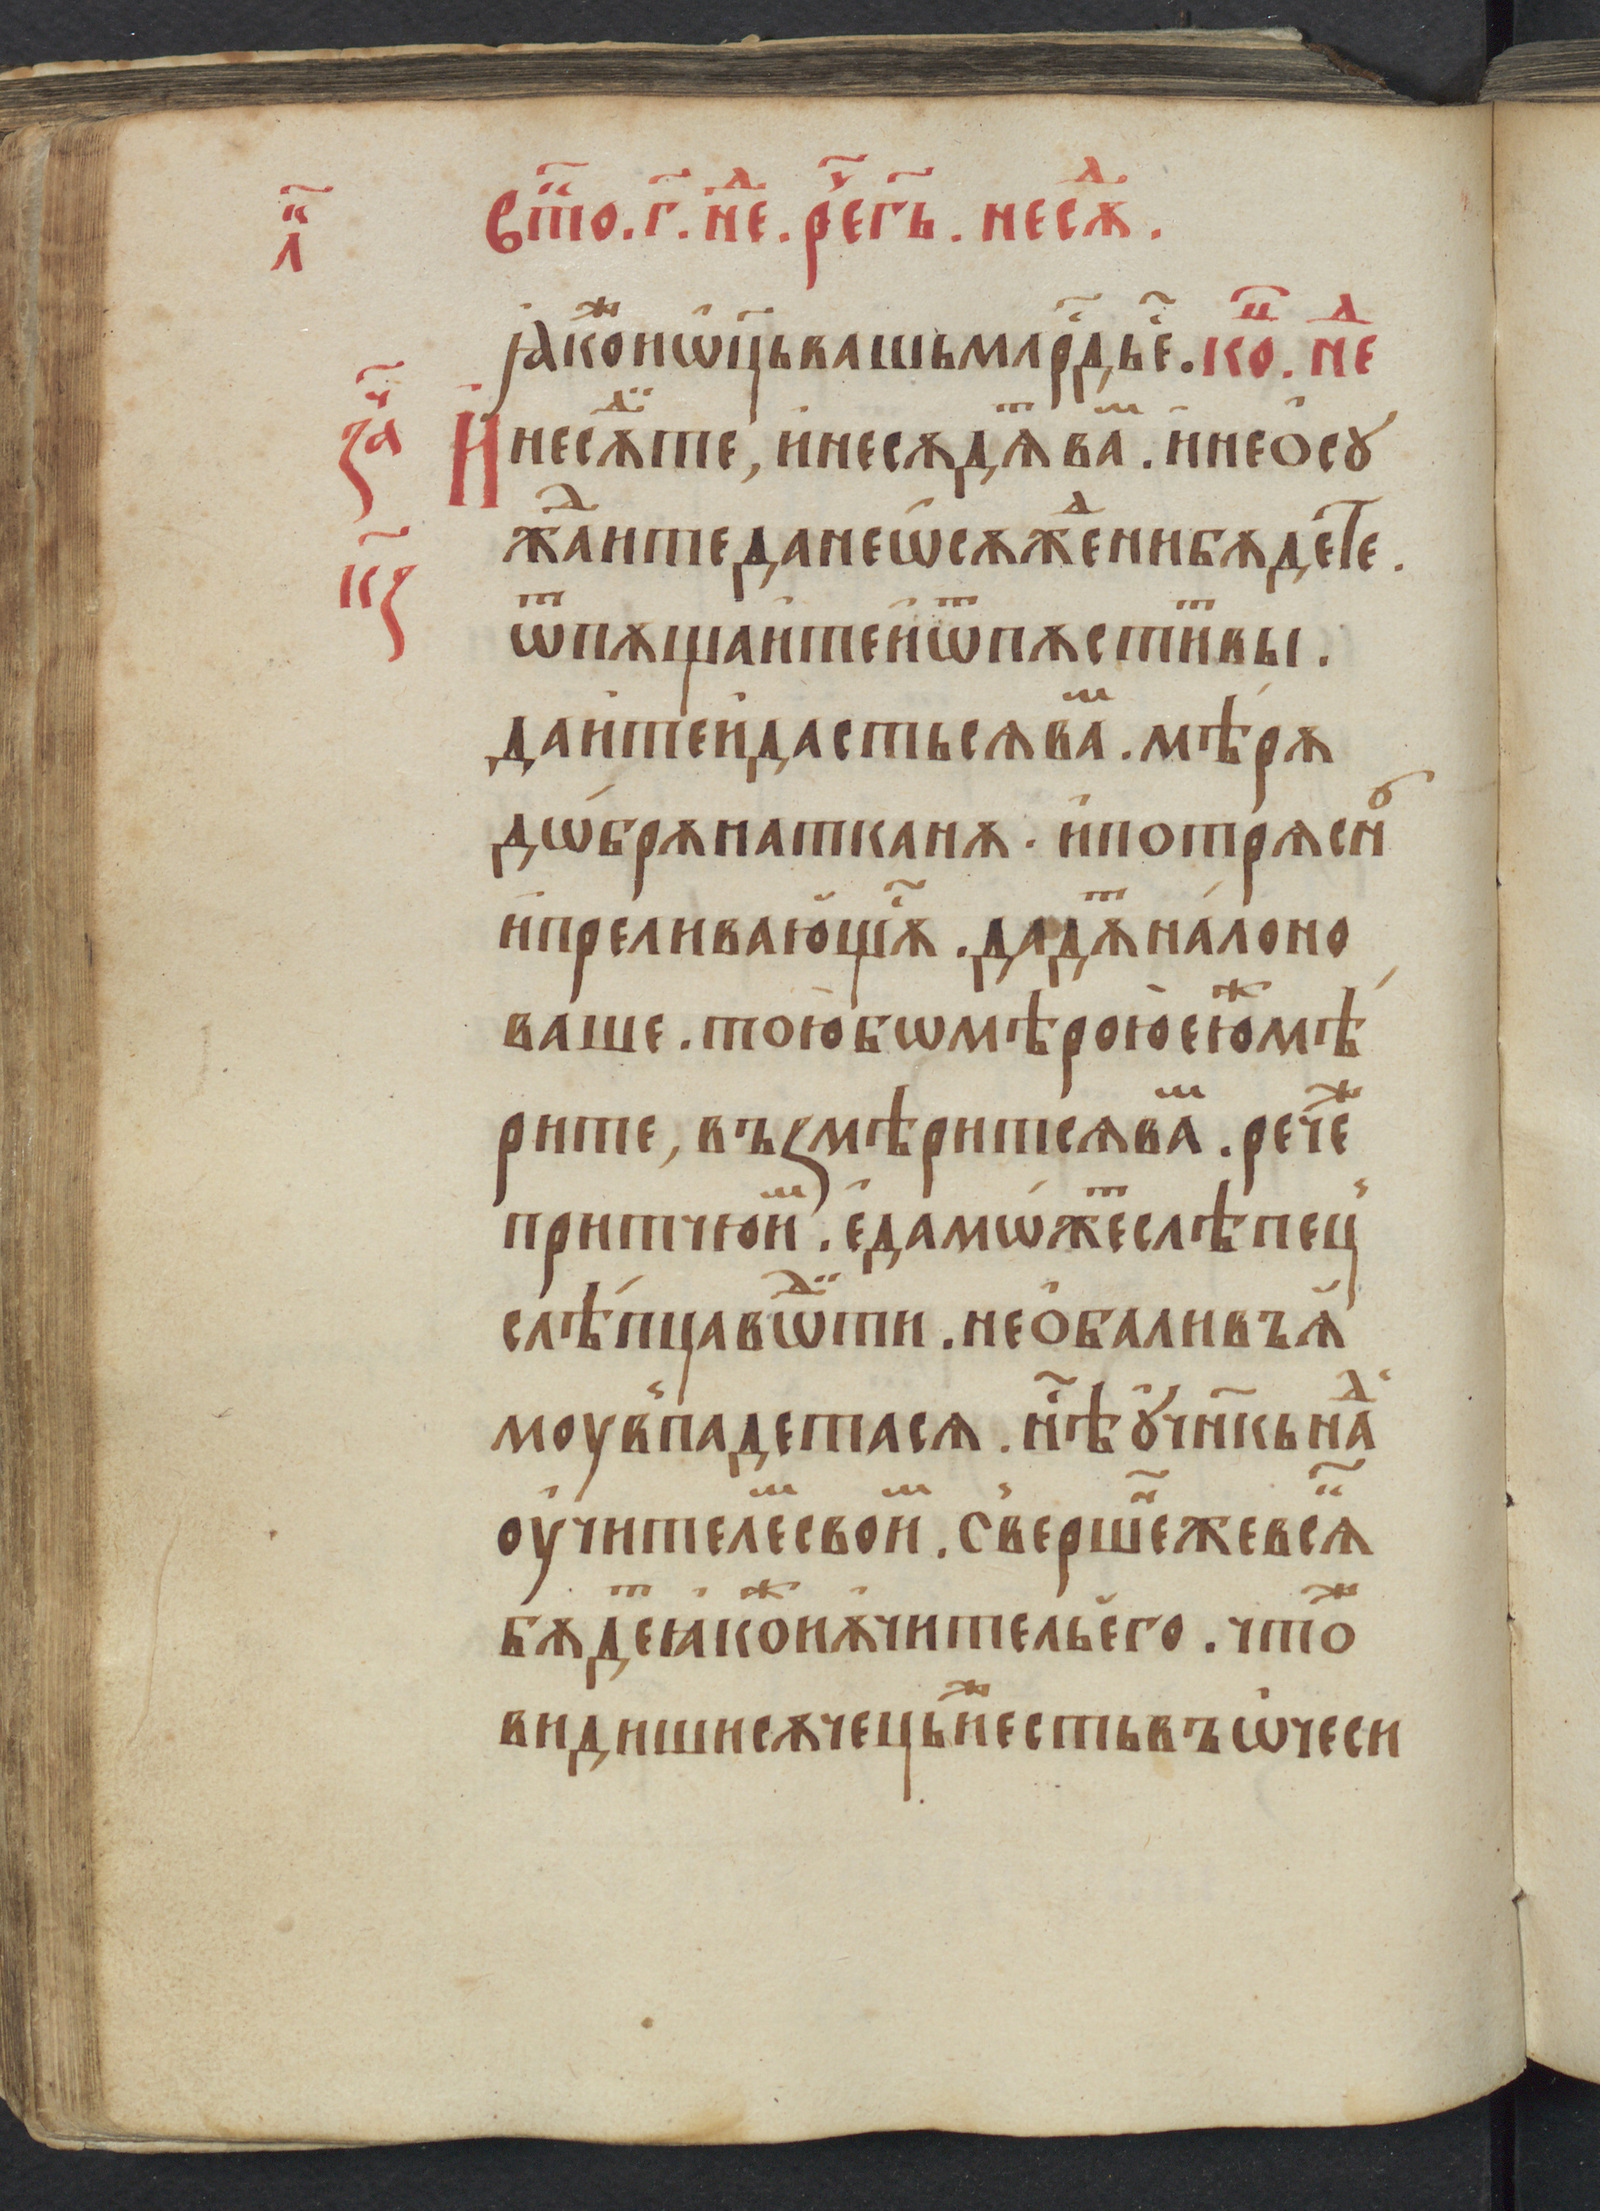 л҃и
вт҃о. г҃. нед. реч҃ гь. не сѫд.
ꙗкож и ѡц҃ь вашь млр҃дь е҃. ко҃н. нед
за҃ч
И не сѫдите, и не сѫдѧт вам. и не осꙋ
жданте да не ѡсѫждени бѫдете.
к҃ѕ
ѿпѫщаите и ѿпѫстит вы.
даите и дасться вам. мѣрѫ
дѡбрѫ наткамѫ. и потрѧснꙋ
и преливающїѫ. дадѧт на лоно
ваше. тою бѡ мѣрою еюж мѣ
рите, възмѣритсѧ вам. реч же
притчю им. еда мѡжет слѣпец
слѣпца вѡдити. не оба ли въ ѧ
моу впадетасѧ. нѣ҃ ꙋчн҃кь над
оучителем своим. свершен же всѧк
бѫдет ꙗкож и ѫчитель его. что ж
видиши сѫчець иже есть въ ѡчеси